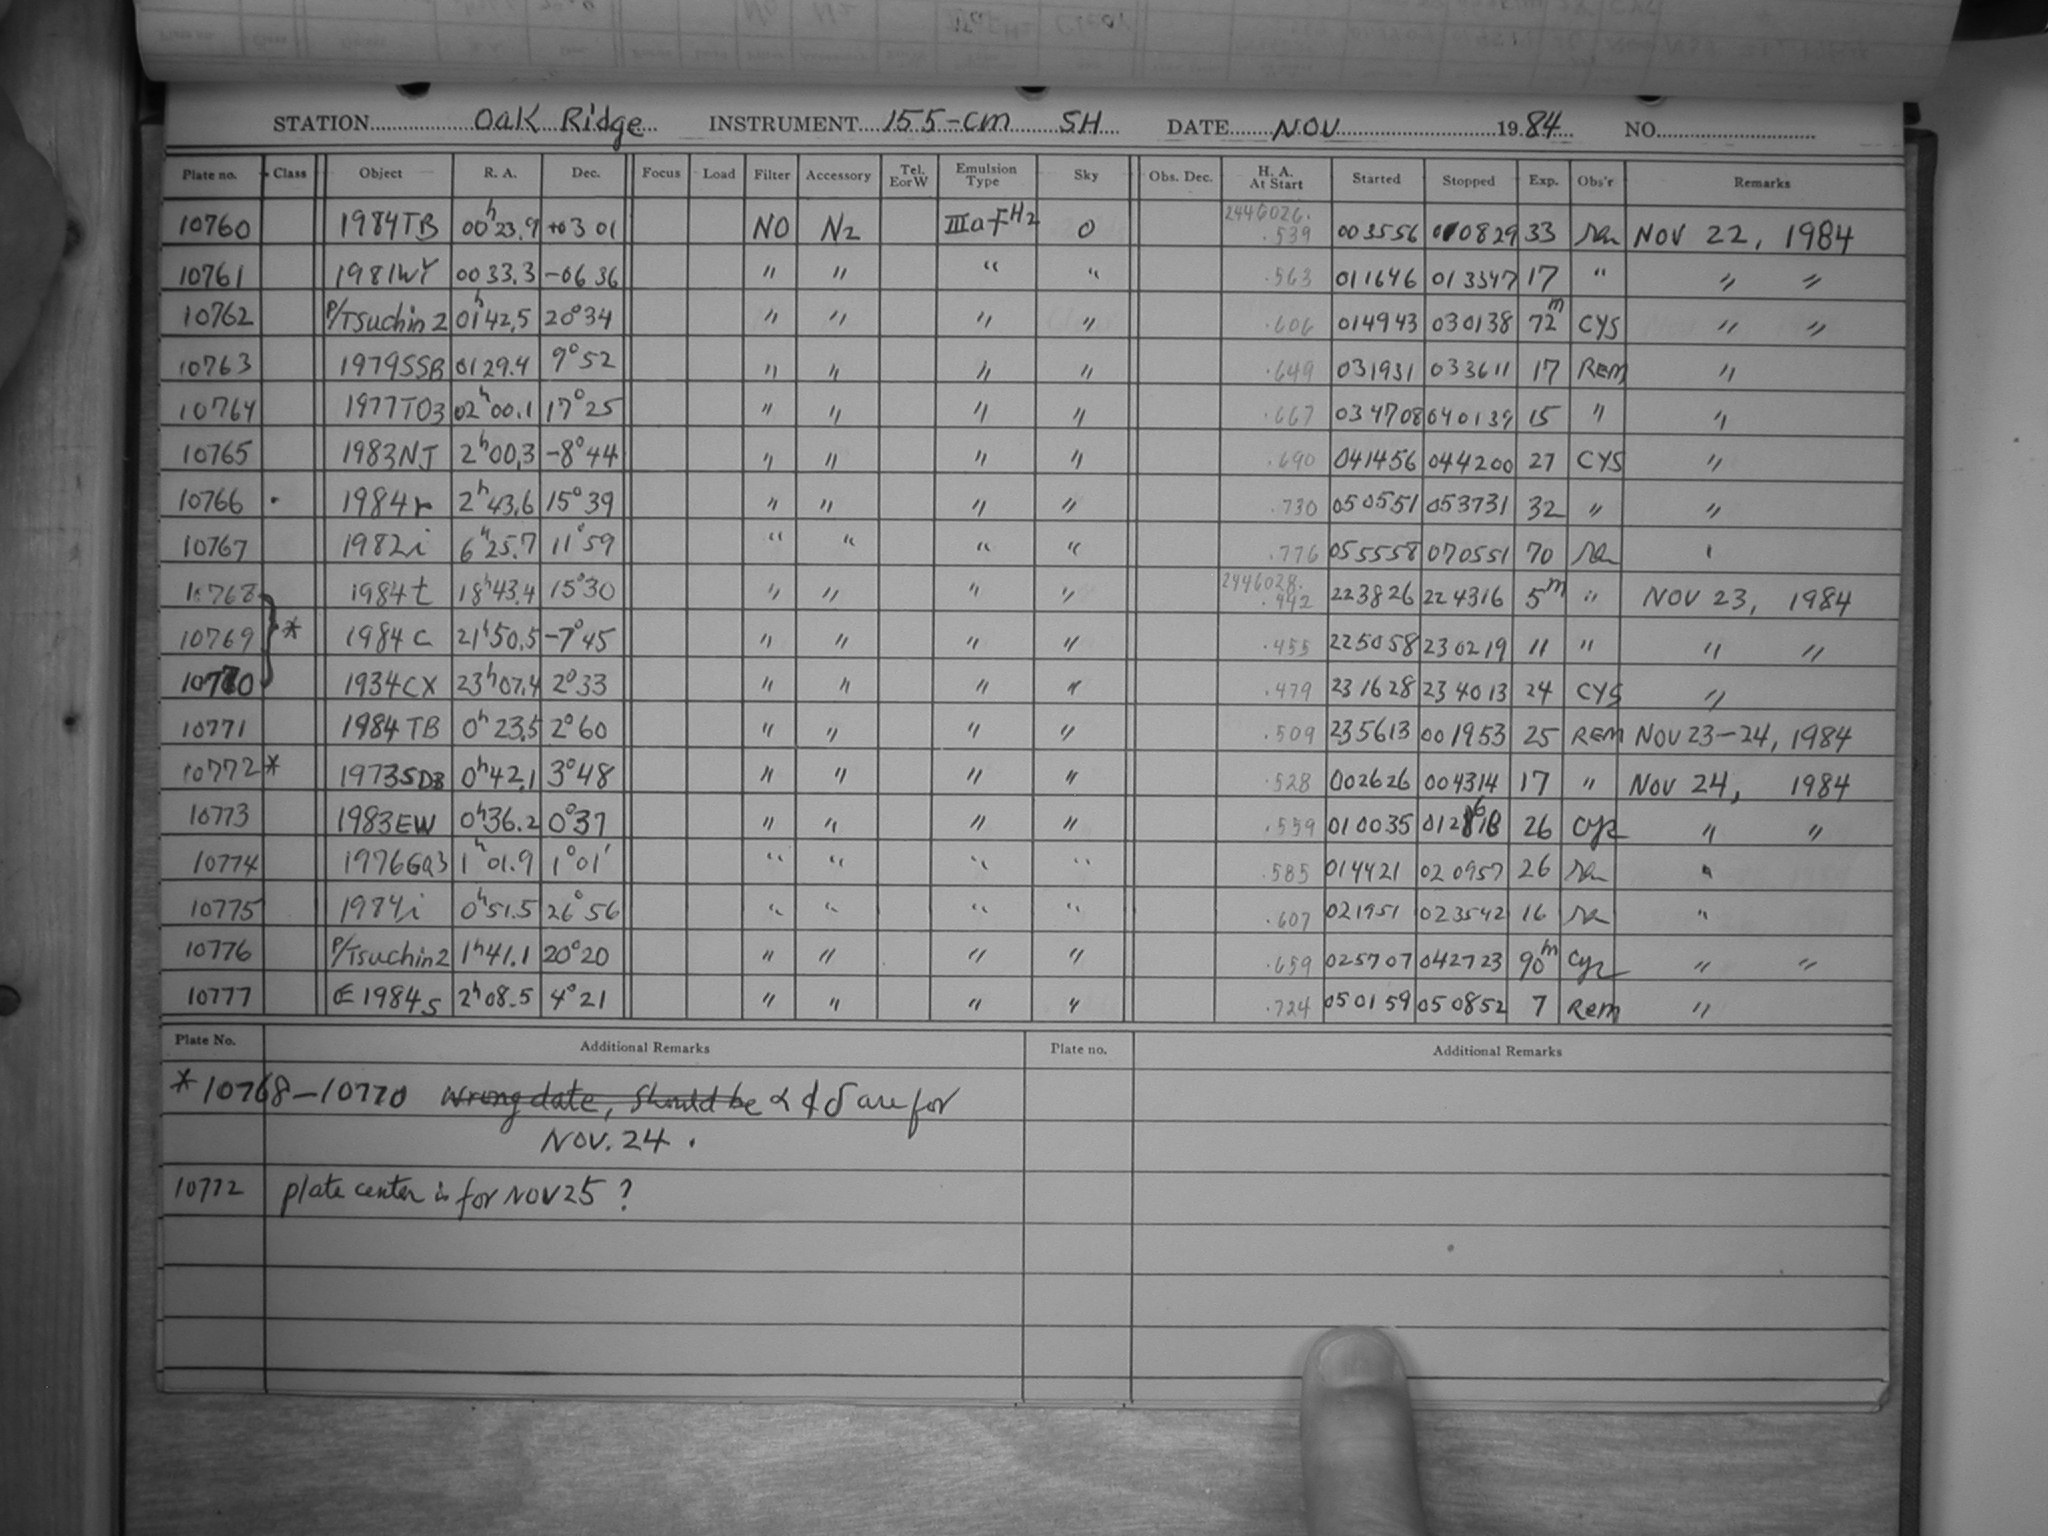 STATION Oak Ridge INSTRUMENT 155-cm SH DATE NOV 1984 NO.
Plate no. Class Object R. A. Dec. Focus Load Filter Accessory Tel. E or W Emulsion Type Sky Obs. Dec. H. A. At Start Started Stopped Exp. Obs'r Remarks
10760 1984TB 00h23.9 +03 01 NO N2 IIIa-F H2 0 2446026. .539 003556 010829 33 NOV 22, 1984
10761 1981WY 00 33.3 -06 36 " " " " .563 011646 013347 17 " " "
10762 P/Tsuchin 2 01h42.5 20°34 " " " " .606 014943 030138 72m CYS " "
10763 1979SSB 01 29.4 9°52 " " " " .649 031931 033611 17 REM "
10764 1977TO3 02h00.1 17°25 " " " " .667 034708 040139 15 " "
10765 1983NJ 2h00.3 -8°44 " " " " .690 041456 044200 27 CYS "
10766 . 1984r 2h43.6 15°39 " " " " .730 050551 053731 32 " "
10767 1982i 6h25.7 11°59 " " " " .776 055558 070551 70 '
10768 1984t 18h43.4 15°30 " " " " 2446028. .942 223826 224316 5m " NOV 23, 1984
10769 } * 1984 C 21h50.5 -7°45 " " " " .455 225058 230219 11 " " "
10770 1934CX 23h07.4 2°33 " " " " .479 231628 234013 24 CYS "
10771 1984 TB 0h23.5 2°60 " " " " .509 235613 001953 25 REM NOV 23-24, 1984
10772 * 1973SDB 0h42.1 3°48 " " " " .528 002626 004314 17 " NOV 24, 1984
10773 1983EW 0h36.2 0°37 " " " " .559 010035 26 CYS " "
10774 1976GQ3 1h01.9 1°01' " " " " .585 014421 020957 26 "
10775 1984i 0h51.5 26°56 " " " " .607 021951 023542 16 "
10776 P/Tsuchin 2 1h41.1 20°20 " " " " .659 025707 042723 90m CYS " "
10777 1984s 2h08.5 4°21 " " " " .724 050159 050852 7 Rem "
Plate No. Additional Remarks Plate no. Additional Remarks
*10768-10770 Wrong date, should be α & δ are for
NOV. 24.
10772 plate center is for NOV 25 ?